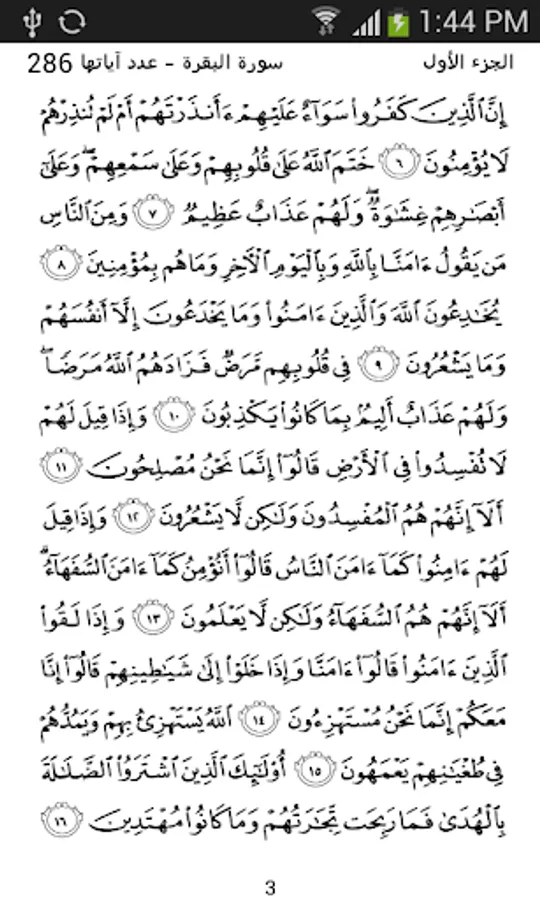 1:44 PM
الجزء الأول
سورة البقرة - عدد آياتها 286
إِنَّ ٱلَّذِينَ كَفَرُوا۟ سَوَآءٌ عَلَيْهِمْ ءَأَنذَرْتَهُمْ أَمْ لَمْ تُنذِرْهُمْ
لَا يُؤْمِنُونَ ٦ خَتَمَ ٱللَّهُ عَلَىٰ قُلُوبِهِمْ وَعَلَىٰ سَمْعِهِمْ ۖ وَعَلَىٰٓ
أَبْصَـٰرِهِمْ غِشَـٰوَةٌ ۖ وَلَهُمْ عَذَابٌ عَظِيمٌ ٧ وَمِنَ ٱلنَّاسِ
مَن يَقُولُ ءَامَنَّا بِٱللَّهِ وَبِٱلْيَوْمِ ٱلْـَٔاخِرِ وَمَا هُم بِمُؤْمِنِينَ ٨
يُخَـٰدِعُونَ ٱللَّهَ وَٱلَّذِينَ ءَامَنُوا۟ وَمَا يَخْدَعُونَ إِلَّآ أَنفُسَهُمْ
وَمَا يَشْعُرُونَ ٩ فِى قُلُوبِهِم مَّرَضٌ فَزَادَهُمُ ٱللَّهُ مَرَضًا ۖ
وَلَهُمْ عَذَابٌ أَلِيمٌۢ بِمَا كَانُوا۟ يَكْذِبُونَ ١٠ وَإِذَا قِيلَ لَهُمْ
لَا تُفْسِدُوا۟ فِى ٱلْأَرْضِ قَالُوٓا۟ إِنَّمَا نَحْنُ مُصْلِحُونَ ١١
أَلَآ إِنَّهُمْ هُمُ ٱلْمُفْسِدُونَ وَلَـٰكِن لَّا يَشْعُرُونَ ١٢ وَإِذَا قِيلَ
لَهُمْ ءَامِنُوا۟ كَمَآ ءَامَنَ ٱلنَّاسُ قَالُوٓا۟ أَنُؤْمِنُ كَمَآ ءَامَنَ ٱلسُّفَهَآءُ ۗ
أَلَآ إِنَّهُمْ هُمُ ٱلسُّفَهَآءُ وَلَـٰكِن لَّا يَعْلَمُونَ ١٣ وَإِذَا لَقُوا۟
ٱلَّذِينَ ءَامَنُوا۟ قَالُوٓا۟ ءَامَنَّا وَإِذَا خَلَوْا۟ إِلَىٰ شَيَـٰطِينِهِمْ قَالُوٓا۟ إِنَّا
مَعَكُمْ إِنَّمَا نَحْنُ مُسْتَهْزِءُونَ ١٤ ٱللَّهُ يَسْتَهْزِئُ بِهِمْ وَيَمُدُّهُمْ
فِى طُغْيَـٰنِهِمْ يَعْمَهُونَ ١٥ أُو۟لَـٰٓئِكَ ٱلَّذِينَ ٱشْتَرَوُا۟ ٱلضَّلَـٰلَةَ
بِٱلْهُدَىٰ فَمَا رَبِحَت تِّجَـٰرَتُهُمْ وَمَا كَانُوا۟ مُهْتَدِينَ ١٦
3